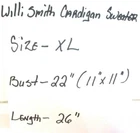 Willi Smith Cardigan Sweater
Size - XL
Bust - 22" (11"x11")
Length - 26"